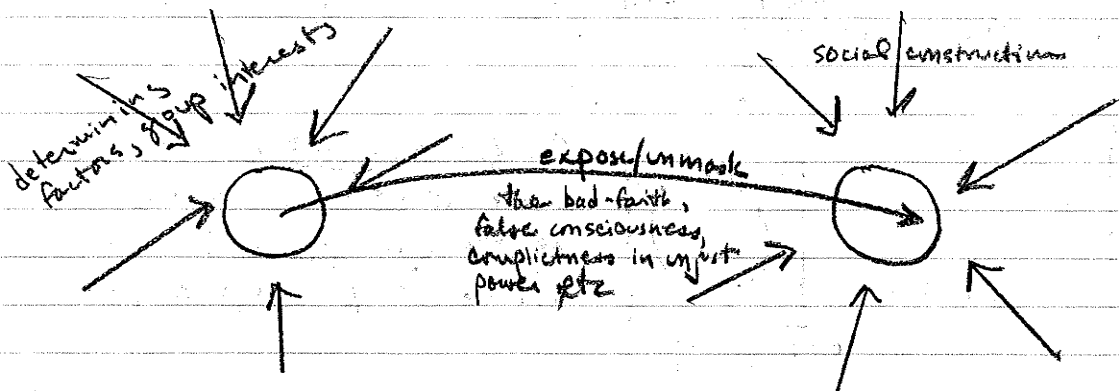 determining
factors, group interests
social constructions
expose/unmask
the bad-faith,
false consciousness,
complictness in unjust
power etc